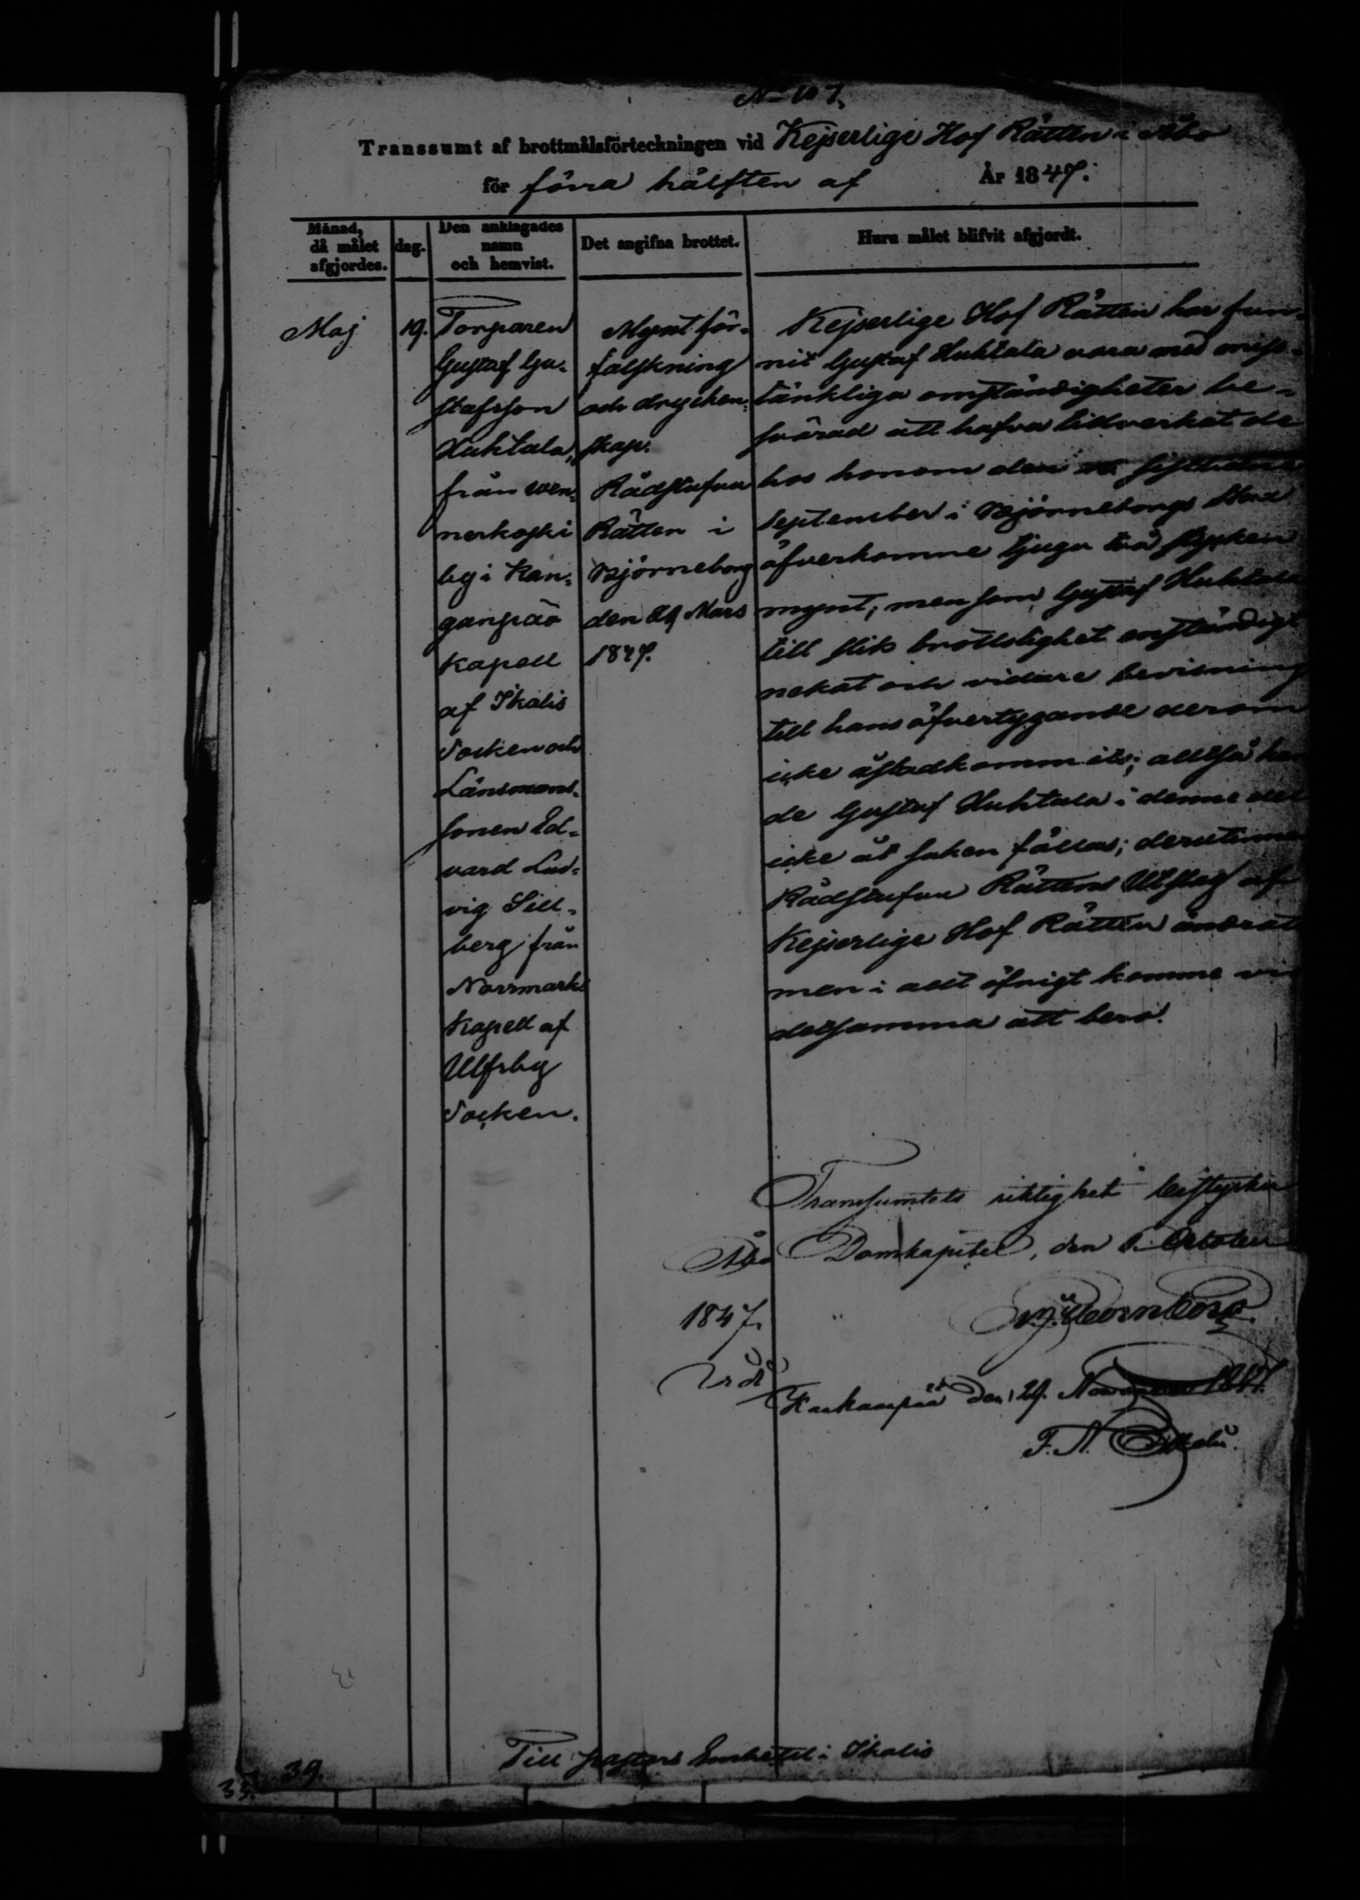 No 107.
Transsumt af brottmålsförteckningen vid Kejserlige Hof Rätten i Åbo
för förra hälften af År 1847.
Månad, då målet afgjordes.
dag.
Den anklagades namn och hemvist.
Det angifna brottet.
Huru målet blifvit afgjordt.
Maj
19.
Torparen
Gustaf Gu-
stafsson
Huhtala,
från Wen-
nerkoski
by i Kan-
ganpää
Kapell
af Ikalis
Socken och
Länsmans-
sonen Ed-
vard Lud-
vig Sell-
berg från
Norrmarks
Kapell af
Ulfsby
Socken.
Mynt för-
falskning
och drycken-
skap.
Rådstufvu
Rätten i
Björneborg
den 29 Mars
1847.
Kejserlige Hof Rätten har fun-
nit Gustaf Huhtala vara med miss-
tänkliga omständigheter be-
svärad att hafva tillverkat de
hos honom den
September i Björneborgs Stad
öfverkomne tjugu två stycken
mynt, men som Gustaf Huhtala
till slik brottslighet enständigt
nekat och vidare bevisning
till hans öfvertygande derom
icke åstadkommits; alltså
de Gustaf Huhtala i denne del
icke åt saken fällas;
Rådstufvu Rättens Utslag af
Kejserlige Hof Rätten ändrat
men i allt öfrigt komme vid
detsamma att bero.
Transumtets riktighet bestyrker
Åbo Domkapitel, den Octob
1847.
Kankaanpää den 29. Novemb 1847.
F. A.
Till Pastors Embetet i Ikalis
39.
35.